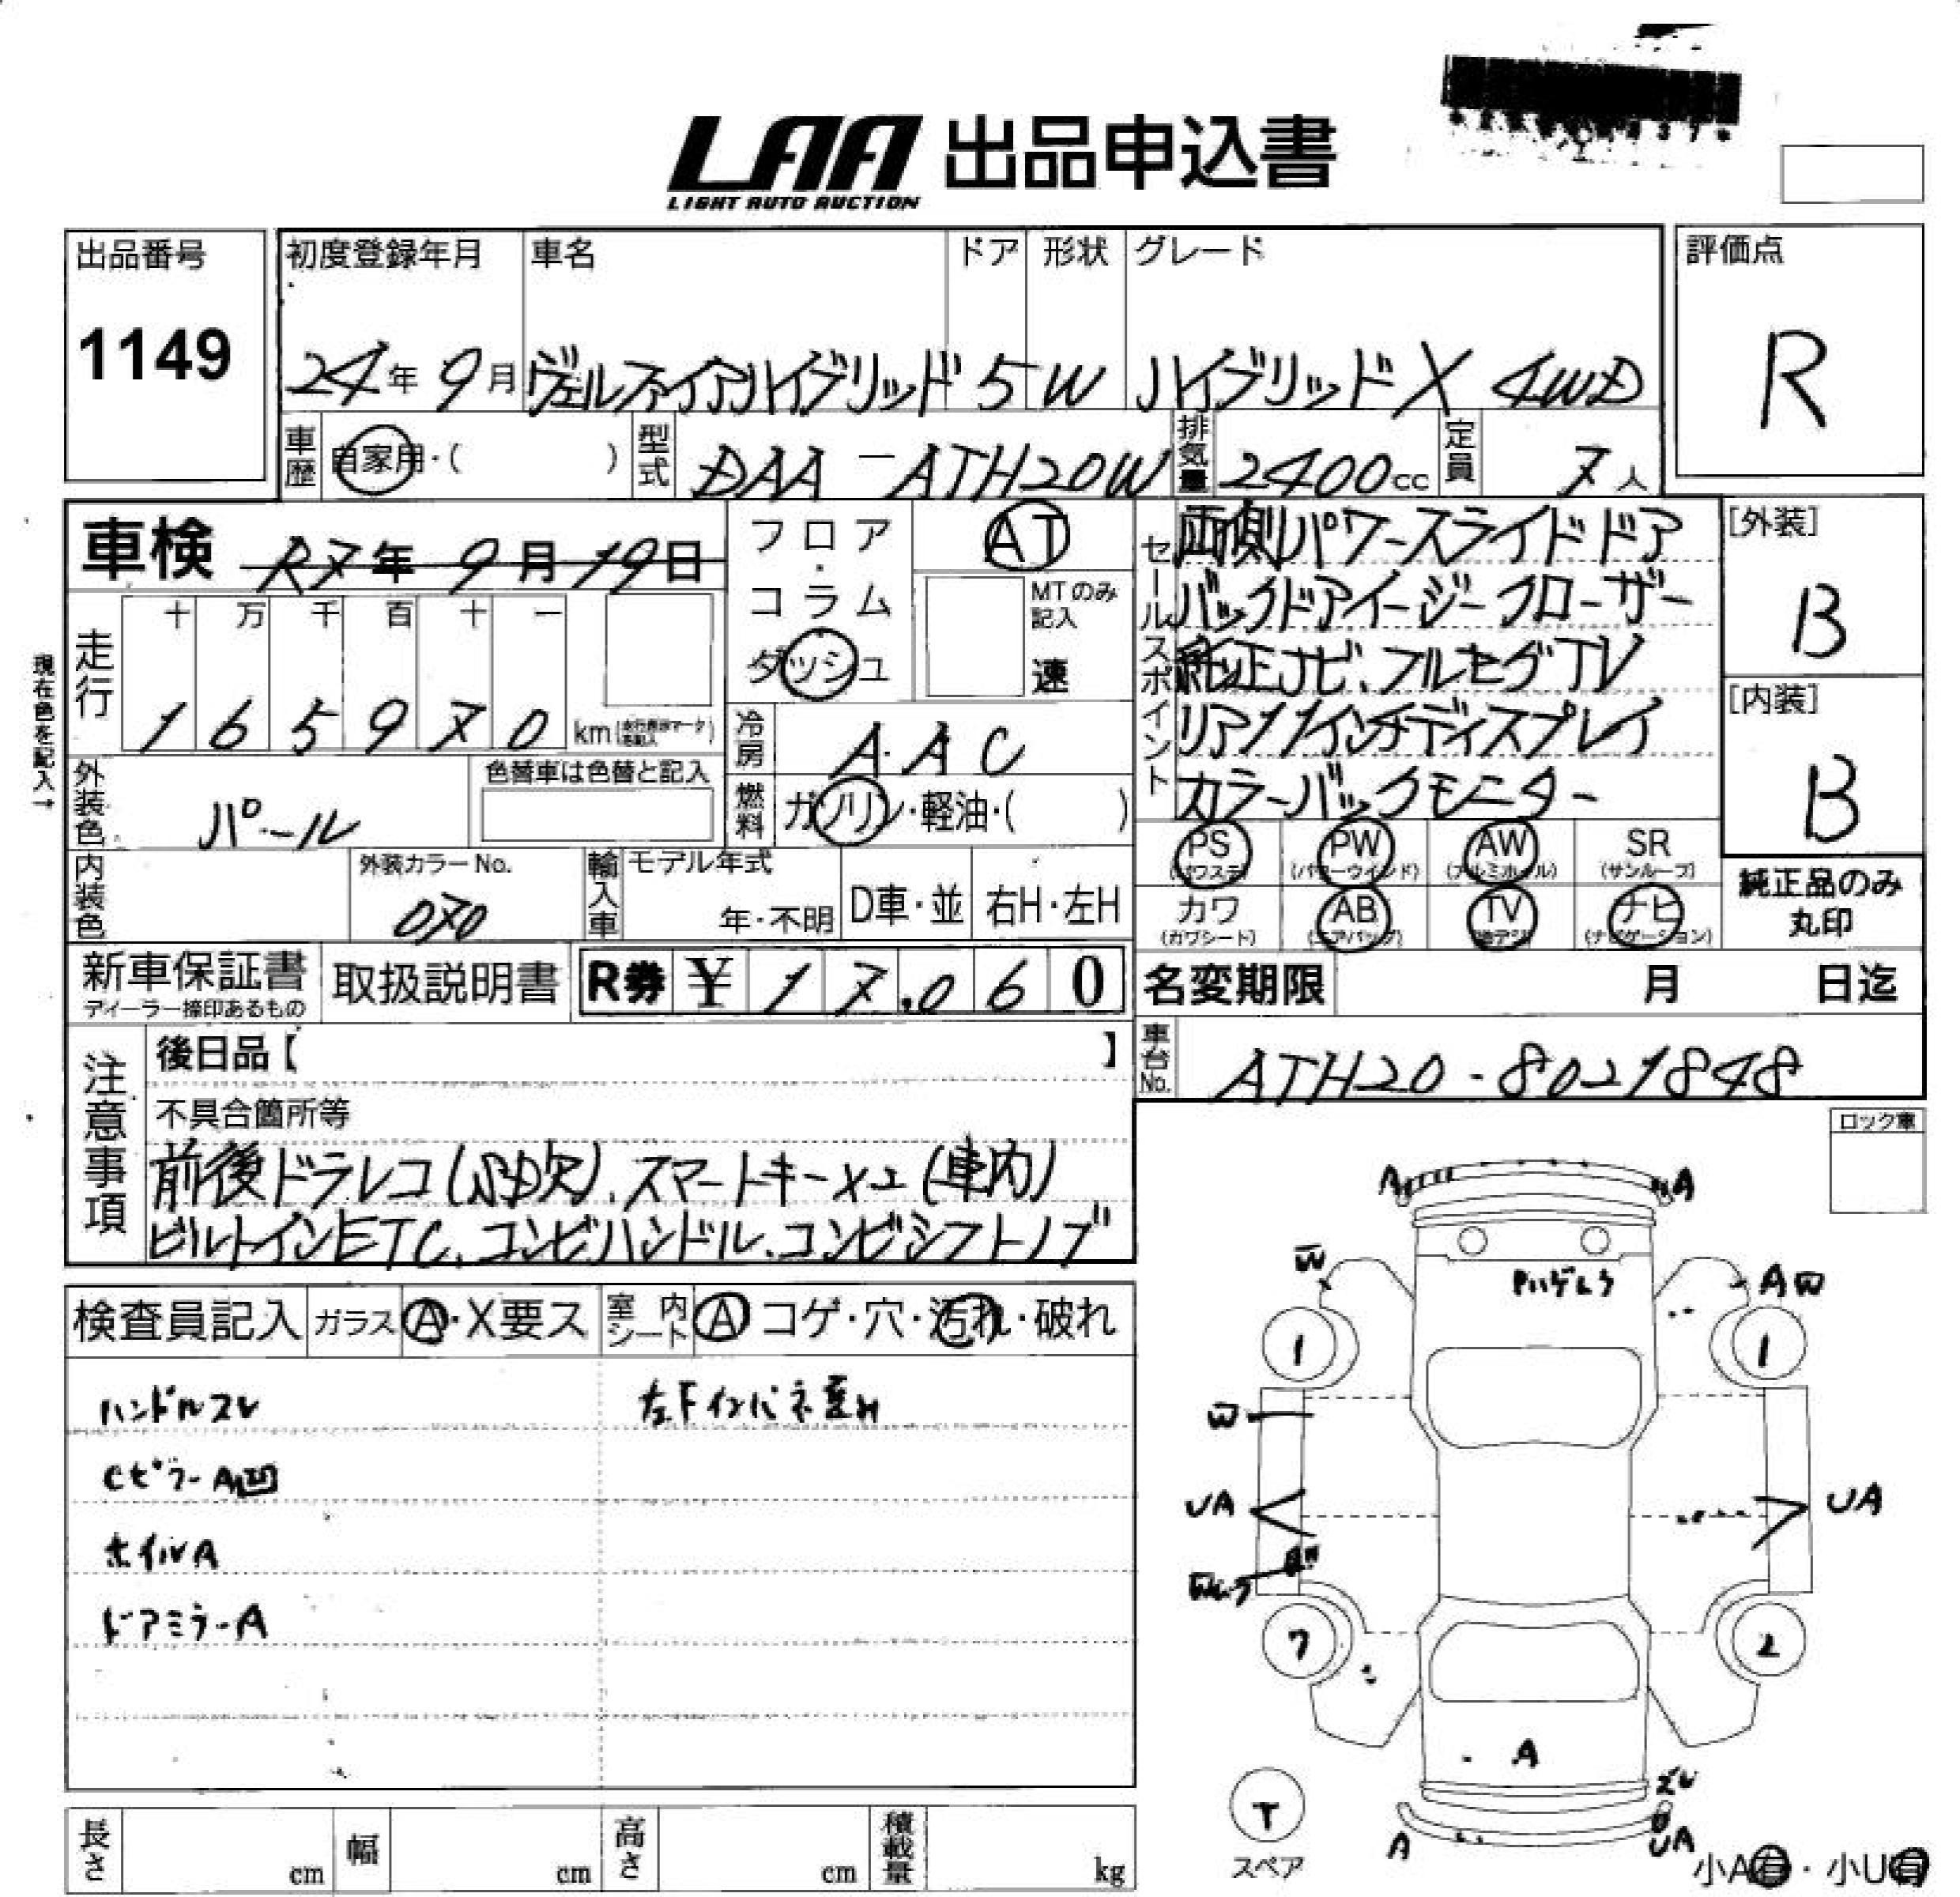 LAA 出品申込書
LIGHT AUTO AUCTION
出品番号
1149
初度登録年月 車名 ドア 形状 グレード
24年 9月 ヴェルファイアハイブリッド 5 W ハイブリッドX 4WD
評価点
R
車歴 自家用・( ) 型式 DAA-ATH20W 排気量 2400cc 定員 7人
車検 R7年 9月 19日
フロア・コラム
ダッシュ
AT
MTのみ記入
速
セールスポイント
両側パワースライドドア
バックドアイージークローザー
純正ナビ、フルセグTV
リア11インチディスプレイ
カラーバックモニター
[外装]
B
[内装]
B
現在色を記入→
走行
十 万 千 百 十 一
1 6 5 9 7 0 km
冷房 AAC
燃料 ガソリン・軽油・( )
外装色 パール
色替車は色替と記入
内装色
外装カラーNo.
070
輸入車 モデル年式
年・不明 D車・並 右H・左H
PS (パワステ) PW (パワーウインド) AW (アルミホイル) SR (サンルーフ)
カワ (カワシート) AB (エアバッグ) TV (地デジ) ナビ (ナビゲーション)
純正品のみ
丸印
新車保証書
ディーラー捺印あるもの
取扱説明書
R券 ¥ 17,060
名変期限 月 日迄
車台No. ATH20-8021848
注意事項
後日品【 】
不具合箇所等
前後ドラレコ(SD欠)、スマートキー×2(車内)
ビルトインETC、コンビハンドル、コンビシフトノブ
ロック車
検査員記入 ガラス A・X要ス 室内シート A コゲ・穴・汚れ・破れ
ハンドルスレ
CピラーA凹
ホイルA
ドアミラーA
A A
W
A W
1 1
W
UA UA
7 2
A
スレ
T
スペア
A UA
小A有・小U有
長さ cm 幅 cm 高さ cm 積載量 kg